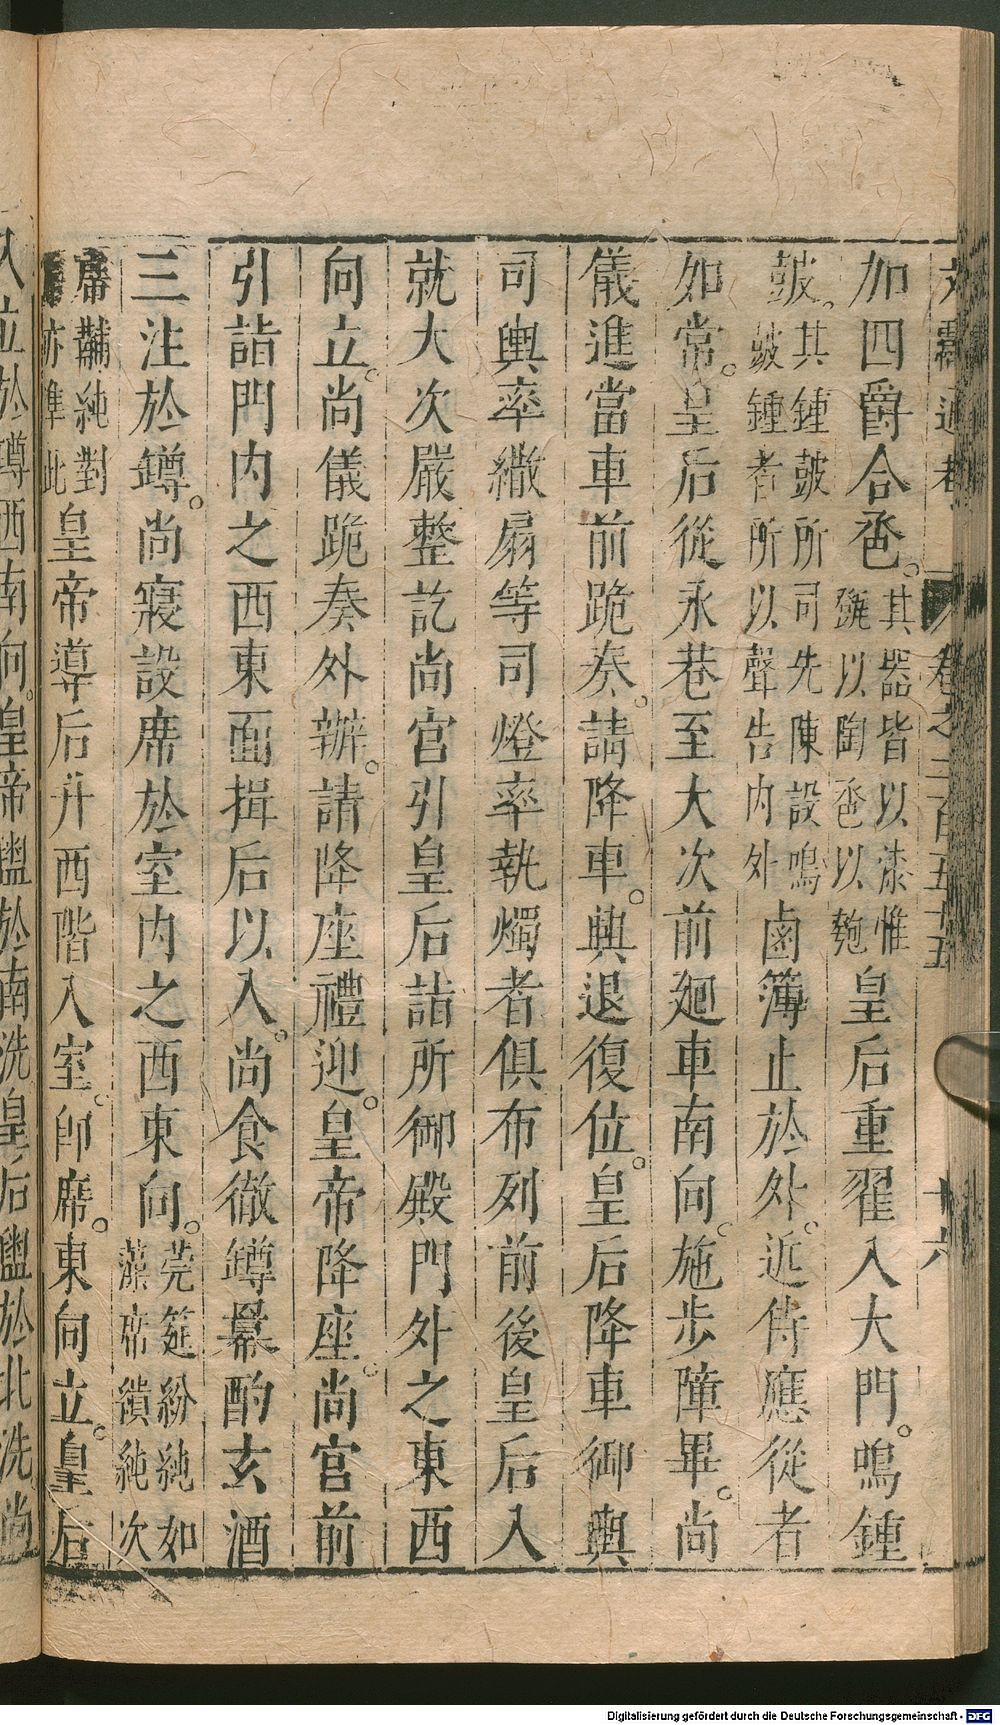 文獻通考 卷之二百五十五 十六
加四爵合卺。其器皆以漆惟巹以陶卺以匏皇后重翟入大門。鳴鍾
鼓。其鍾鼓所司先陳設鳴鼓鍾者所以聲告内外鹵簿止於外。近侍應從者
如常。皇后從永巷至大次前廻車南向。施步障畢。尚
儀進當車前跪奏。請降車。興退復位。皇后降車御輿
司輿率繖扇等司燈率執燭者俱布列前後皇后入
就大次嚴整訖尚宮引皇后詣所御殿門外之東西
向立。尚儀跪奏外辦。請降座禮迎。皇帝降座。尚宮前
引詣門内之西東面揖后以入。尚食徹鐏羃酌玄酒
三注於鐏。尚寢設席於室内之西東向。莞筵紛純如藻席繢純次
席黼純對亦準此皇帝導后升西階入室。即席。東向立。皇后
入立於鐏西南向。皇帝盥於南洗皇后盥於北洗尚
Digitalisierung gefördert durch die Deutsche Forschungsgemeinschaft - DFG